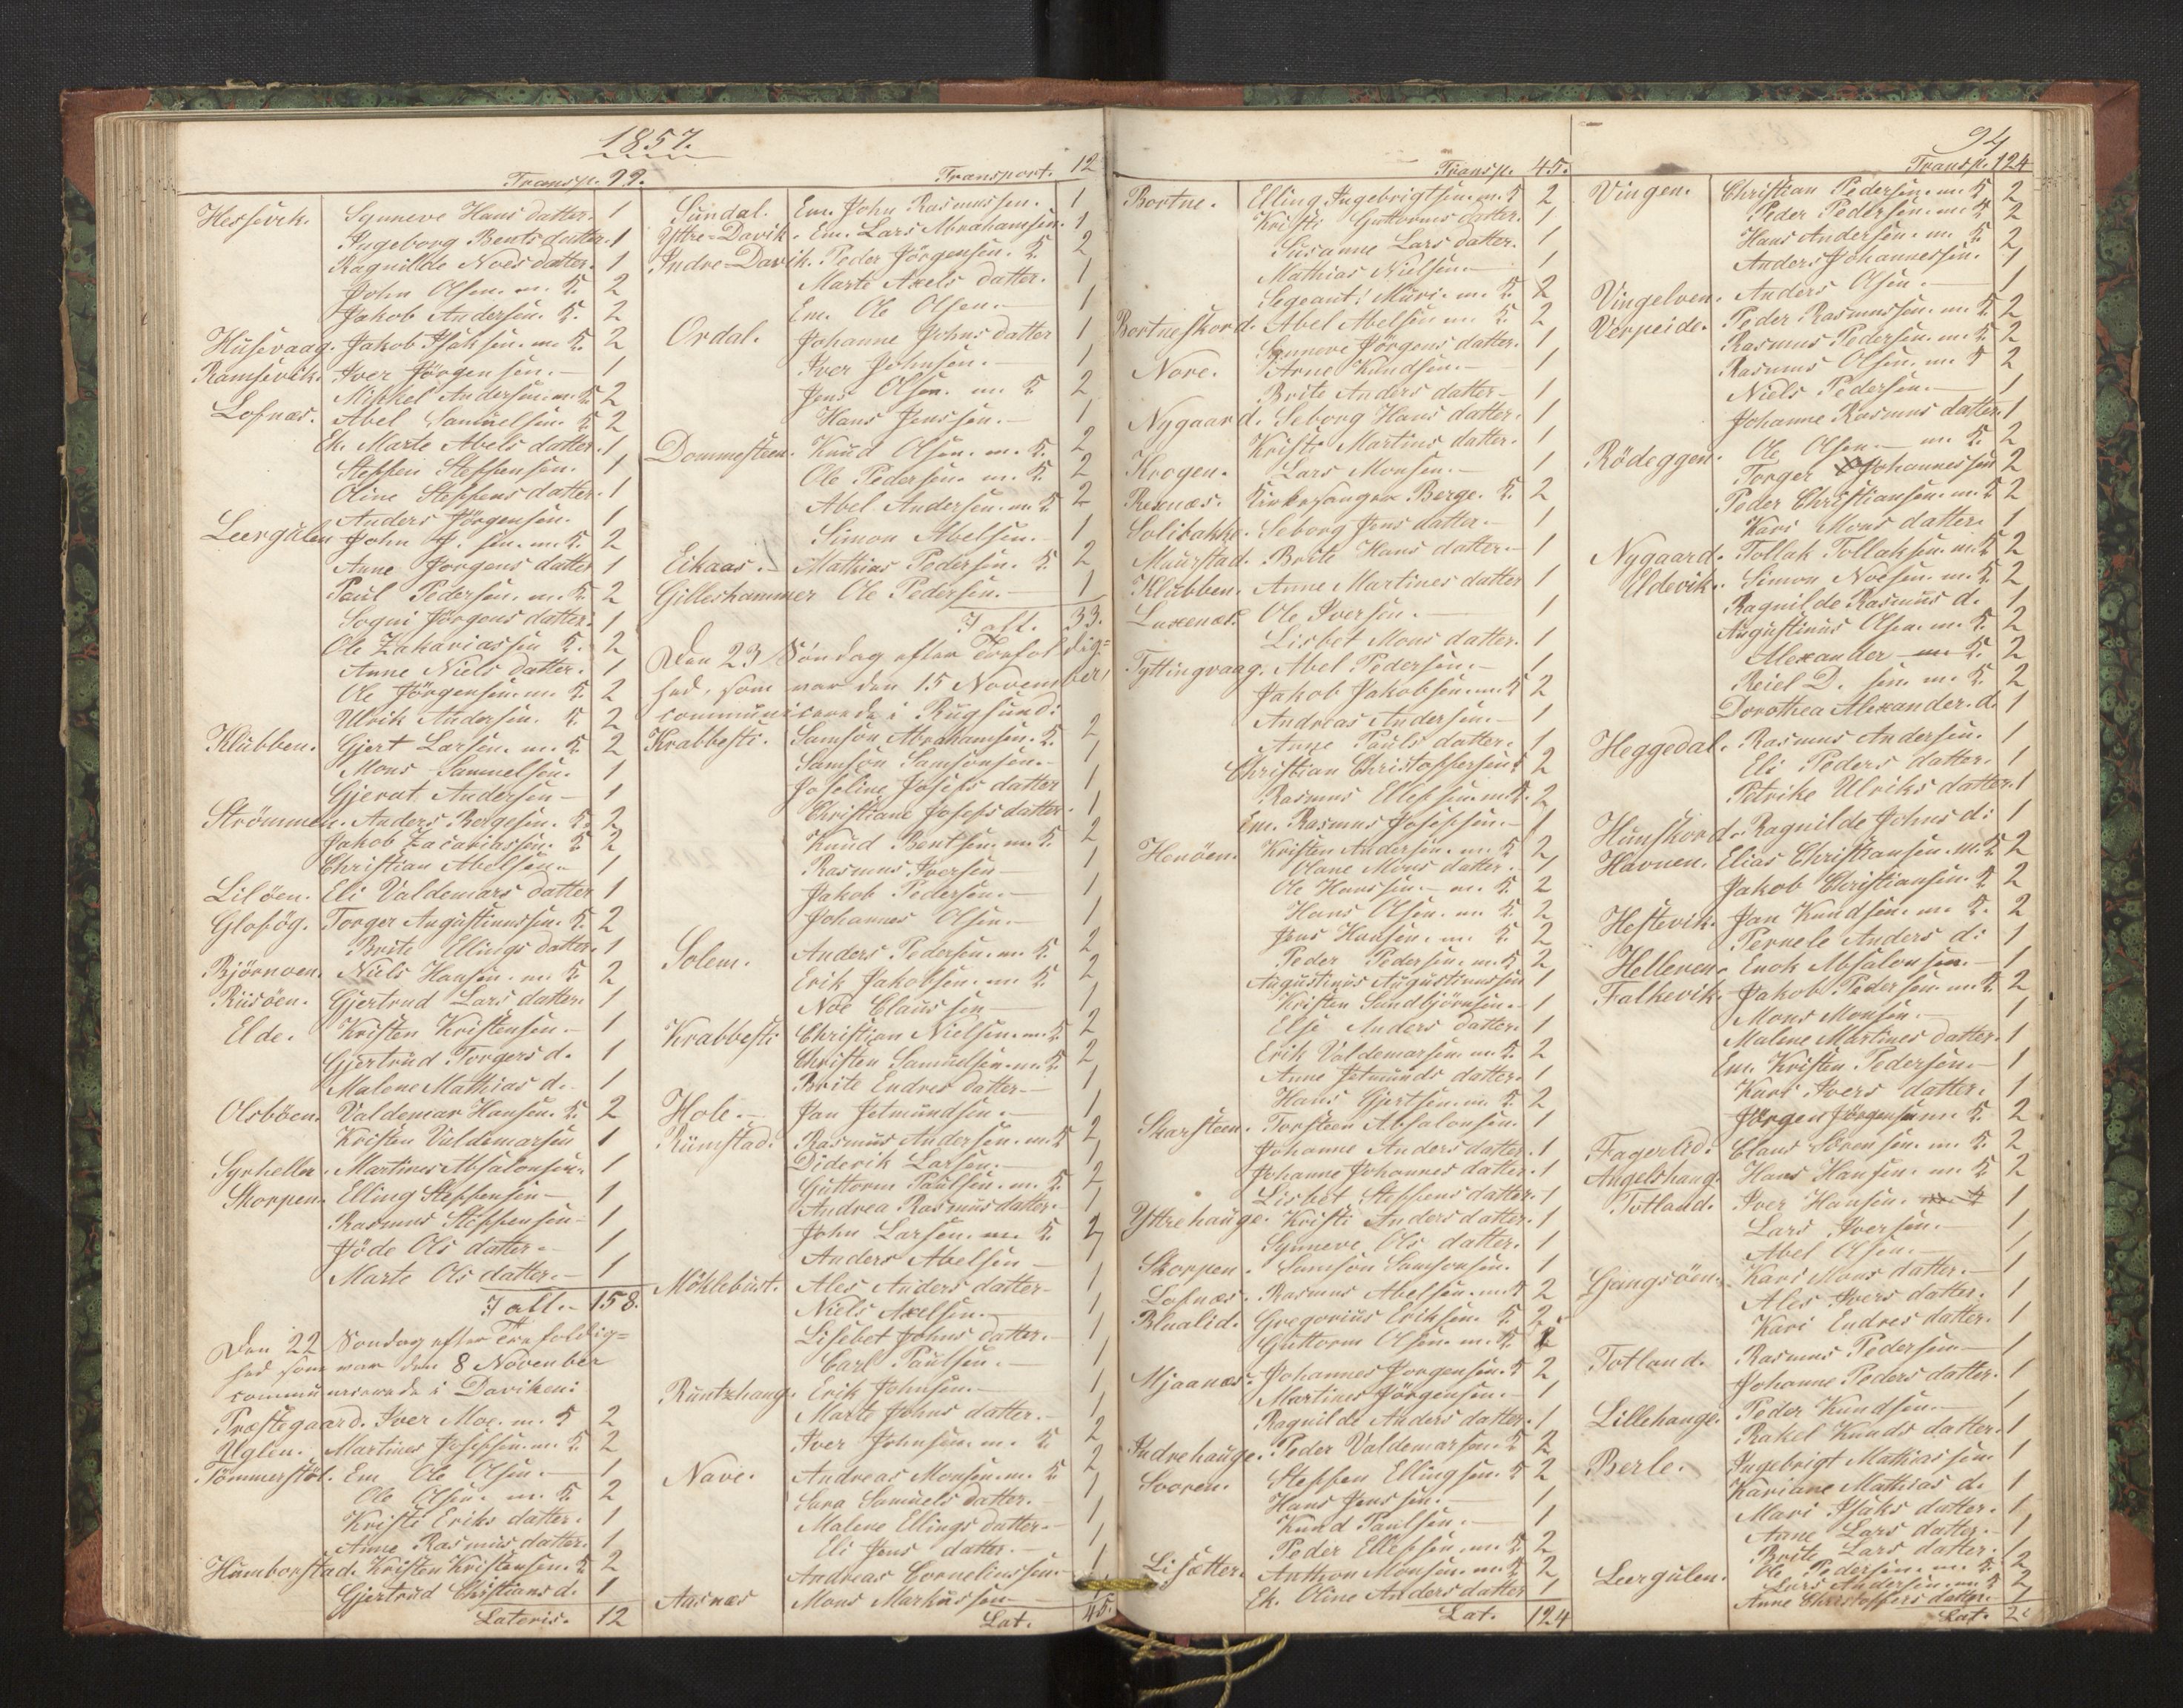 1857.
Transp. 99.
Hessevik. Synneve Hans datter. 1
Ingeborg Bents datter. 1
Ragnilde Noes datter. 1
John Olsen. m. K. 2
Jakob Andersen. K. 2
Husevaag. Jakob Isaksen. m. K. 2
Ramsevik. Iver Jörgensen. – 1
Mikkel Andersen. m. K. 2
Lofnæs. Abel Samuelsen. K. 2
Ek. Marte Abels datter. 1
Steffen Steffensen. 1
Oline Steffens datter. 1
Anders Jörgensen. 1
Leergulen John J. sen. m. K. 2
Anne Jorgens datter 1
Paul Pedersen. m. K. 2
Sogni Jörgens datter. 1
Ole Zakariassen K. 2
Anne Niels datter. 1
Ole Jörgensen. m. K. 2
Ulrik Andersen. K. 2
Klubben. Gjert Larsen. m. K. 2
Mons Samuelsen. 1
Gjerat Andersen – 1
Strömmen. Anders Borgesen. K. 2
Jakob Zacariassen. K. 2
Christian Abelsen. – 1
Lilöen. Eli Valdemars datter 1
Glosög. Torger Augustinussen. K. 2
Brite Ellings datter. 1
Björnoen. Niels Hansen. m. K. 2
Riisöen. Gjertrud Lars datter. 1
Elde. Kristen Kristensen. – 1
Gjertrud Torgers d. 1
Malene Mathias d. 1
Olsböen. Valdemar Hansen. K. 2
Kristen Valdemarsen 1
Syrheller. Martines Absalonsen. 1
Skorpen. Elling Steffensen – 1
Rasmus Steffensen – 1
Jöde Ols datter. – 1
Marte Ols datter. – 1
Tall. – 158.
Den 22 Sondag efter Trefoldig=
hed som var den 8 November
communiserede i Daviken:
Præstegaard. Iver Moe. m. K 2
Uglen. Martines Josefsen. m. K. 2
Tömmerstöl. Em. Ole Olsen. – 1
Ole Olsen. m. K. 2
Kristi Eriks datter. 1
Anne Rasmus datter. 1
Humborstad. Kristen Kristensen. K 2
Gjertrud Christians d. 1
Lateris. 12
Transport. 12
Sundal. Em. John Rasmussen. 1
Yttre=Davik. Em. Lars Abrahamsen. 1
Indre=Davik. Peder Jörgensen. K. 2
Marte Axels datter. 1
Em. Ole Olsen. – 1
Ordal. Johanne Johns datter 1
Iver Johnsen. – 1
Jens Olsen. m. K. 2
Hans Jenssen. – 1
Dommesteen. Knud Olsen. m. K. 2
Ole Pedersen. m. K. 2
Abel Andersen. m. K 2
Simon Abelsen. – 1
Eikaas. – Mathias Pedersen. K. 2
Gilleshammer Ole Pedersen. – 1
Tall. 33.
Den 23 Söndag efter Trefoldig=
hed, som var den 15 November,
communiserede i Rugsund:
Krabbesti. Samson Abrahamsen. K. 2
Samson Samsonsen. – 1
Joseline Josefs datter 1
Christiane Josefs datter. 1
Knud Bentsen. m. K. 2
Rasmus Iversen – 1
Jakob Pedersen. – 1
Johannes Olsen. – 1
Solem. Anders Pedersen. m. K. 2
Erik Jakobsen. m. K 2
Noe Claussen – 1
Krabbesti Christian Nielsen. m. K. 2
Christen Samuelsen. m. K. 2
Brite Endres datter – 1
Hole. – Jan Jetmundsen. – 1
Rimstad. Rasmus Andersen. m. K 2
Diderik Larsen. – 1
Guttorm Paulsen. m. K. 2
Andrea Rasmus datter. – 1
John Larsen. m. K. 2
Anders Abelsen – 1
Möklebust. Ales Anders datter – 1
Niels Axelsen. – 1
Lisebet Johns datter. – 1
Carl Paulsen. – 1
Runtehaug. Erik Johnsen. – 1
Marte Johns datter. – 1
Iver Johnsen. m. K. 2
Nave. Andreas Monsen. m. K. 2
Sara Samuels datter. – 1
Malene Ellings datter. – 1
Eli Jens datter. – 1
Andreas Corneliussen – 1
Aasnæs Mons Markussen – 1
Lat. 45.
Transp. 45.
Bortne. Elling Ingebrigtsen. m. K 2
Kristi Guttorms datter. 1
Susanne Lars datter. 1
Mathias Nielsen. – 1
Segeant: Muri. m. K. 2
Bortneskord. Abel Abelsen m K. 2
Synneve Jörgens datter. 1
Nore. Arne Knudsen. – 1
Brite Anders datter – 1
Nygaard. Seborg Hans datter. 1
Kristi Martins datter. 1
Krogen. Lars Monsen. – 1
Rexnæs. Kirkesanger Berge. K. 2
Solibakke. Seborg Jens datter. – 1
Maurstad. Brite Hans datter. – 1
Klubben. Anne Martines datter 1
Luxenæs. Ole Iversen. – 1
Lisbet Mons datter. 1
Tyttingvaag. Abel Pedersen. – 1
Jakob Jakobsen. m. K 2
Andreas Andersen. – 1
Anne Pauls datter. 1
Christian Christoffersen K 2
Rasmus Ellefsen. m. K. 2
Em. Rasmus Josefsen. – 1
Henöen. Kristen Andersen. m. K 2
Olane Mons datter. 1
Ole Hanssen. – m. K. 2
Hans Olsen. m. K. 2
Jens Hansen. m. K. 2
Peder Pedersen. m. K 2
Augustinus Augustinussen 1
Kristen Sandbjörnsen. – 1
Else Anders datter. 1
Erik Valdemarsen. m. K. 2
Anne Jetmunds datter. 1
Hans Gjertsen. m. K 2
Skarsteen. Torsteen Absalonsen. 1
Johanne Anders datter. 1
Johanne Johannes datter. 1
Lisbet Steffens datter. 1
Yttrehauge. Kristi Anders datter. 1
Synneve Ols datter. 1
Skorpen. Samson Samsonsen. 1
Lofnæs. Rasmus Abelsen. m. K 2
Blualid. Gregorius Eriksen. K. 2
Guttorm Olsen. m. K.
Mjaanæs. Johannes Jorgensen. K 2
Martines Jörgensen. – 1
Ragnilde Anders datter. 1
Indrehauge. Peder Valdemarsen. K 2
Svoren. Steffen Ellingsen. K 2
Hans Jenssen. – 1
Knud Paulsen. – 1
Peder Ellefsen. m. K 2
Lisætter. Anthon Monsen. m. K 2
Ek. Oline Anders datter 1
Lat. 124
94
Transp. 124
Vingen. Christian Pedersen. m. K 2
Peder Pedersen. m. K 2
Hans Andersen. m. K. 2
Anders Johannessen. 1
Vingelven. Anders Olsen. – 1
Verpeide. Peder Rasmussen. m. K 2
Rasmus Pedersen. m. K 2
Rasmus Olsen. m. K 2
Niels Pedersen. – 1
Johanne Rasmus datter. 1
Rödeggen. Ole Olsen. – m. K. 2
Torger Johannessen 2
Peder Christiansen. m. K 2
Kari Mons datter. 1
Nygaard. Tollak Tollaksen. m. K 2
Udevik. Simon Noesen. m. K. 2
Ragnilde Rasmus d. 1
Augustinus Olsen. m. K. 2
Alexander m K. 2
Reiel D. sen. m. K. 2
Dorothea Alexander. d. 1
Heggedal. Rasmus Andersen. 1
Eli Peders datter. 1
Petrike Ulriks datter. 1
Hunskord. Ragnilde Johns d: 1
Havnen. Elias Christiansen. m. K 2
Jakob Christiansen. K 2
Hestevik. Jan Knudsen. m K. 2
Pernele Anders d: 1
Helleren. Enok Absalonsen. – 1
Falkevik. Jakob Pedersen. m. K 2
Mons Monsen. – 1
Malene Martines datter. 1
Em. Kristen Pedersen. – 1
Kari Ivers datter. 1
Jörgen Jörgensen m K. 2
Fagerlid. Claus Sörensen. m. K. 2
Angelshaug. Hans Hansen. m. K 2
Totland. Iver Hansen. m. K 1
Lars Iversen. – 1
Abel Olsen. – 1
Gangsöen. Kari Mons datter. – 1
Ales Ivers datter. 1
Kari Endres datter. 1
Totland. Rasmus Pedersen – 1
Johanne Peders datter. 1
Lillehauge. Peder Knudsen. – 1
Rakel Knuds datter. 1
Berle. Ingebrigt Mathiassen 1
Kariane Mathias d. 1
Mari Isaks datter. 1
Anne Lars datter. – 1
Brite Lars datter. 1
Leergulen. Ole Pedersen. m. K. 2
Lars Andersen. m. K 2
Anne Christoffers datter. 1
Lat.